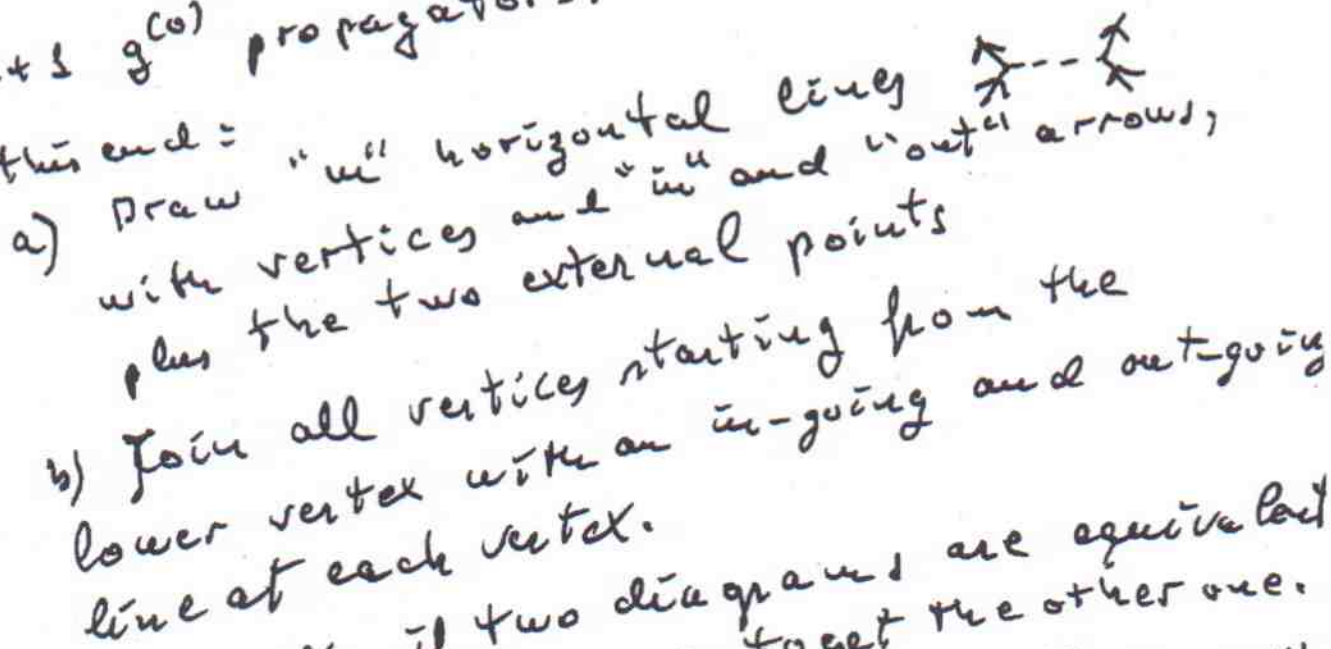 +1 g^(0) propagators
this end:
a) Draw "m" horizontal lines
with vertices and "in" and "out" arrows,
plus the two external points
b) Join all vertices starting from the
lower vertex with an in-going and out-going
line at each vertex.
if two diagrams are equivalent
to get the other one.